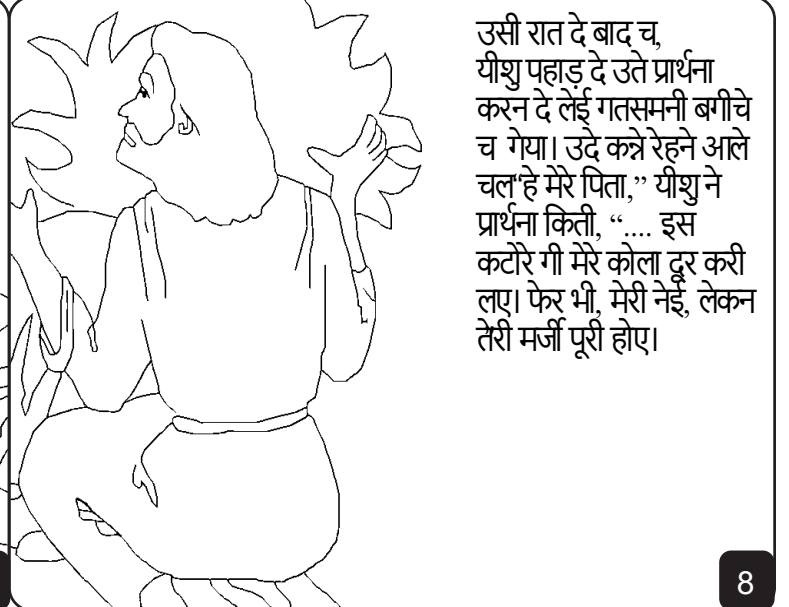 उसी रात दे बाद च,
यीशु पहाड़ दे उते प्रार्थना
करन दे लेई गतसमनी बगीचे
च गेया। उदे कन्ने रेहने आले
चल“हे मेरे पिता,” यीशु ने
प्रार्थना किती, “.... इस
कटोरे गी मेरे कोला दूर करी
लए। फेर भी, मेरी नेई, लेकन
तेरी मर्जी पूरी होए।
8